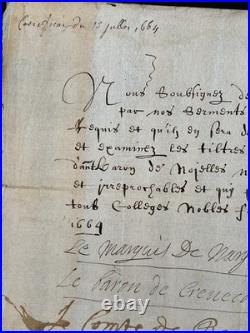 du 15 juillet 1664
Nous Soubsignez de
par nos Serments
Requis et qu'ils en sera d
et examinez les tiltres
Baron de Nojelles n
et irreprochables et qui
tous Colleges Nobles f
1664
Le Marquis De
Le baron de Crenec
Comte de B